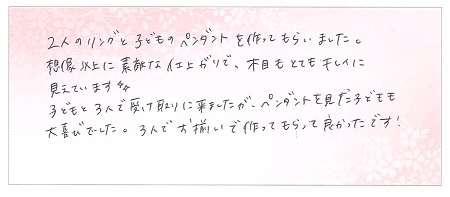 2人のリングと子どものペンダントを作ってもらいました。
想像以上に素敵な仕上がりで、木目もとてもキレイに
見えています☆☆
子どもと3人で受け取りに来ましたが、ペンダントを見た子どもも
大喜びでした。3人でお揃いで作ってもらって良かったです!